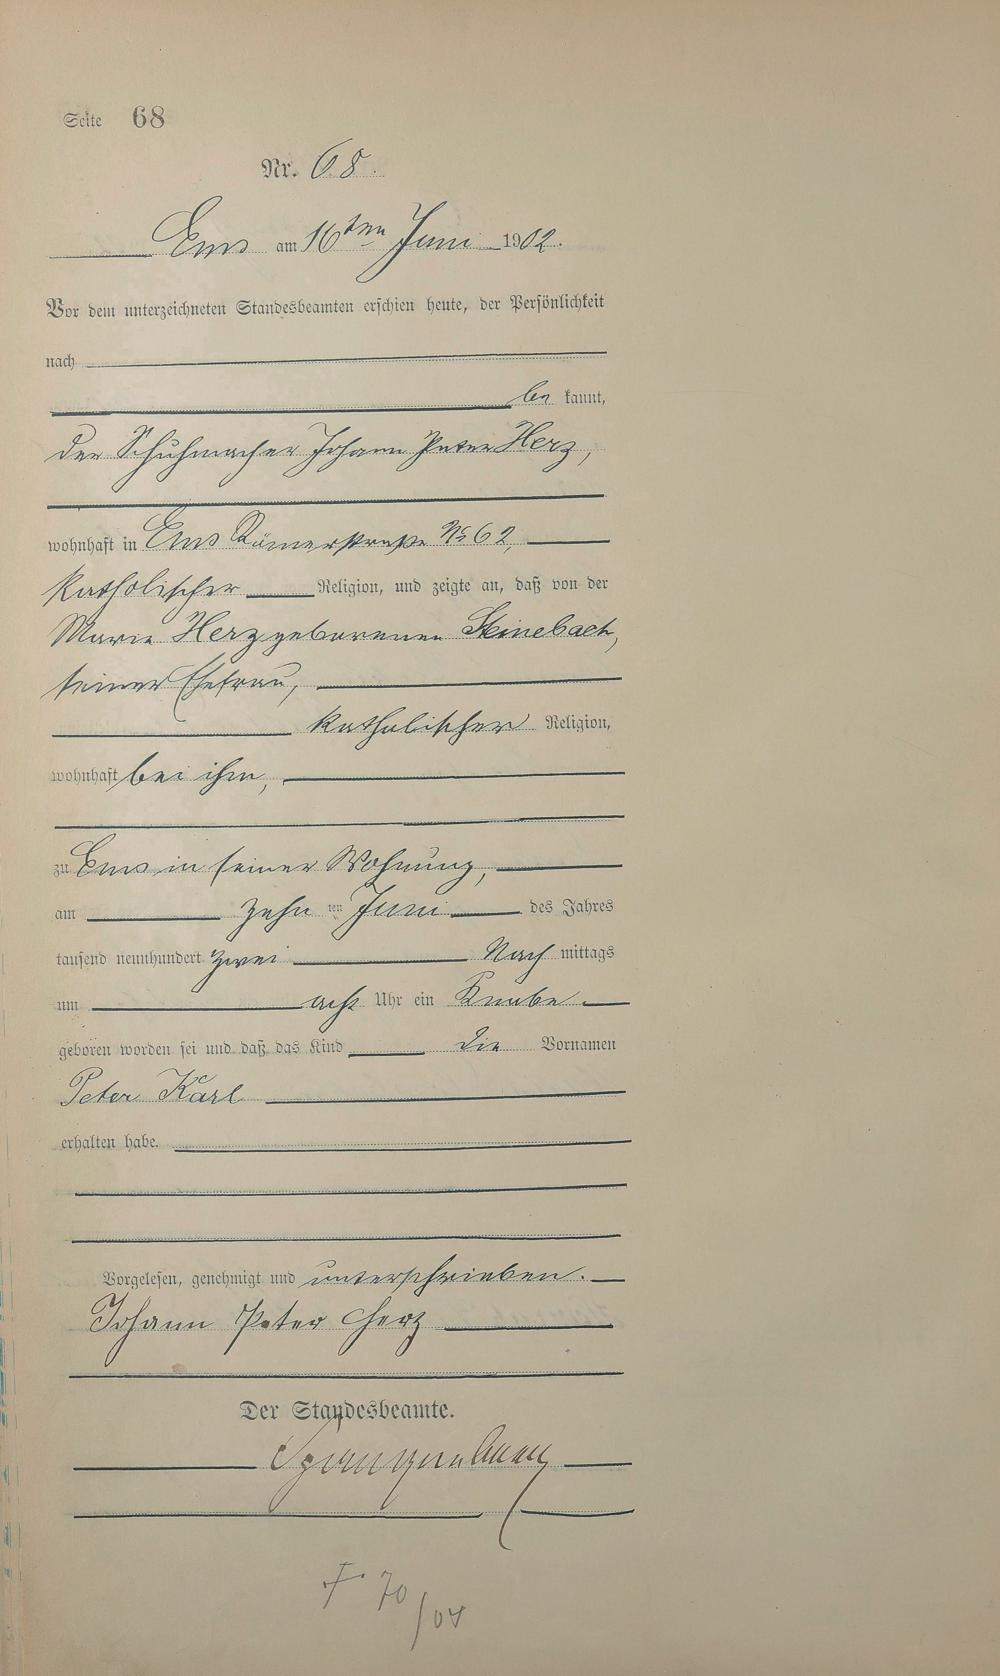 Seite 68
Nr. 68.
Ems am 16ten Juni 1902.
Vor dem unterzeichneten Standesbeamten erschien heute, der Persönlichkeit
nach
be kannt,
der Schuhmacher Johann Peter Herz,
wohnhaft in Ems Römerstraße No 62,
katholischer Religion, und zeigte an, daß von der
Marie Herz geborenen Steinebach,
seiner Ehefrau,
katholischer Religion,
wohnhaft bei ihm,
zu Ems in seiner Wohnung,
am zehn ten Juni des Jahres
tausend neunhundert zwei Nach mittags
um acht Uhr ein Knabe
geboren worden sei und daß das Kind die Vornamen
Peter Karl
erhalten habe.
Vorgelesen, genehmigt und unterschrieben.
Johann Peter Herz
Der Standesbeamte.
† 70/04